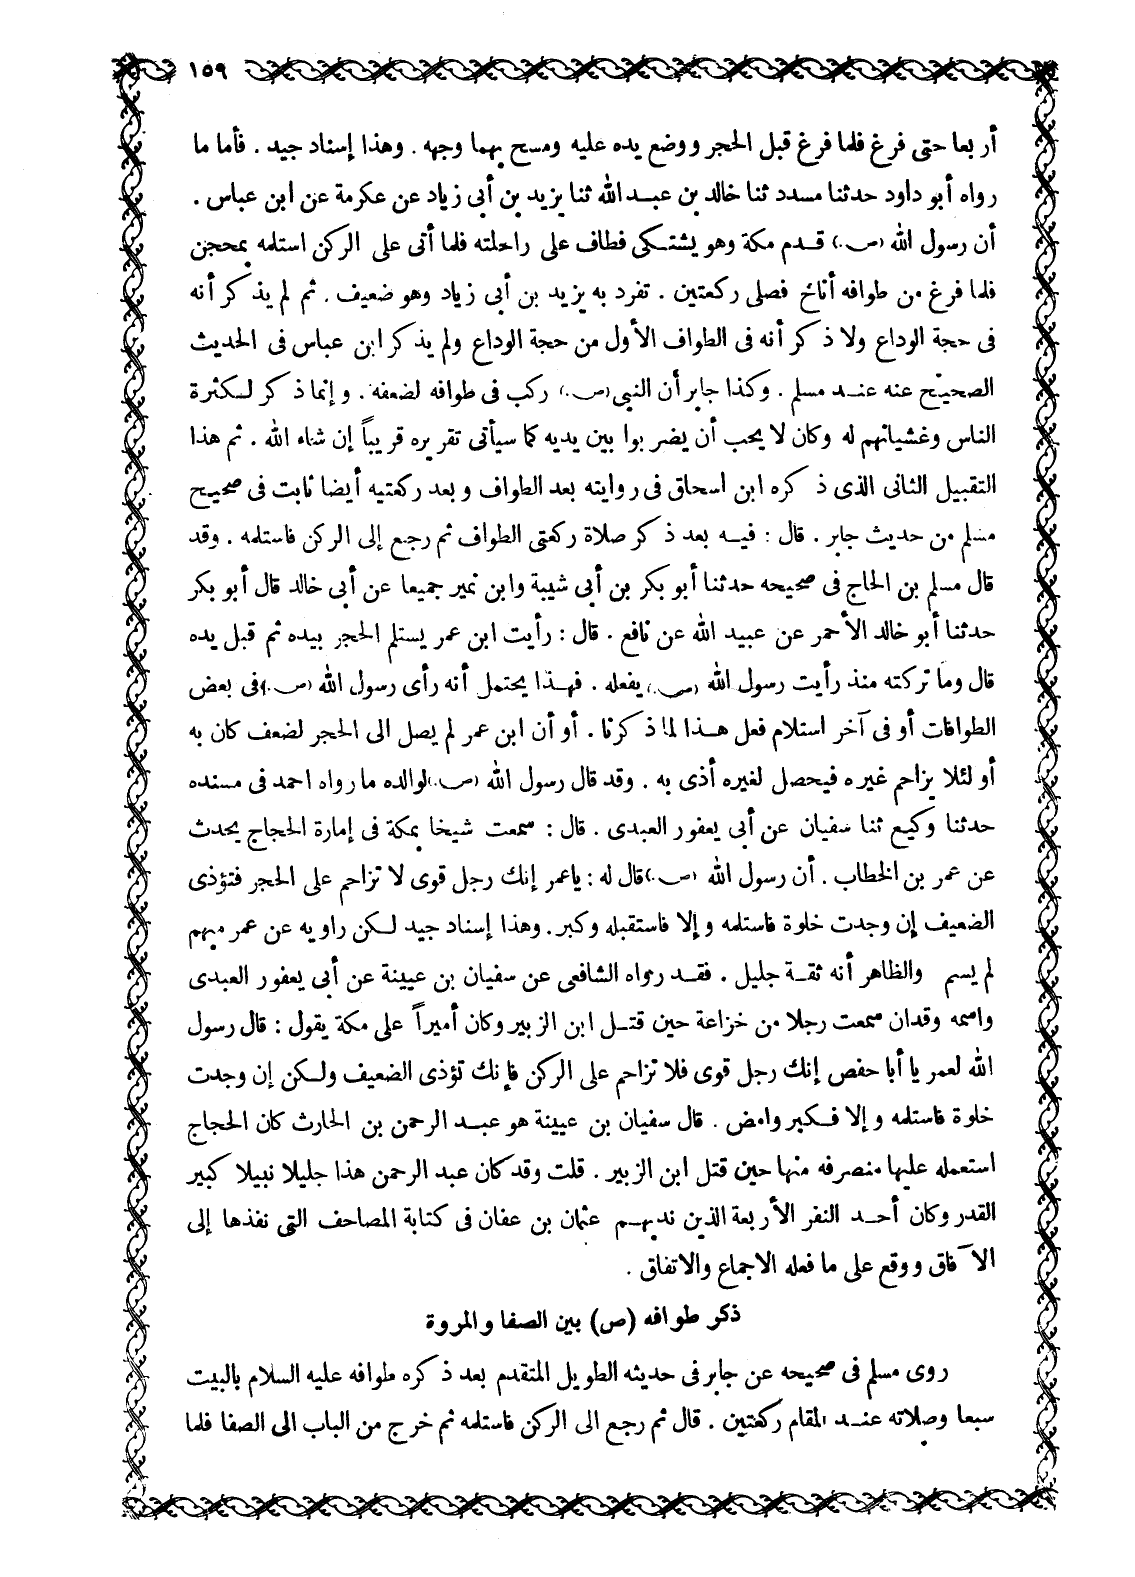 ١٥٩
أربعا حتى فرغ فلما فرغ قبل الحجر ووضع يده عليه ومسح بهما وجهه . وهذا إسناد جيد . فأما ما
رواه أبو داود حدثنا مسدد ثنا خالد بن عبد الله ثنا يزيد بن أبى زياد عن عكرمة عن ابن عباس .
أن رسول الله (ص) قدم مكة وهو يشتكى فطاف على راحلته فلما أتى على الركن استلمه بمحجن
فلما فرغ من طوافه أناخ فصلى ركعتين . تفرد به يزيد بن أبى زياد وهو ضعيف . ثم لم يذكر أنه
فى حجة الوداع ولا ذكر أنه فى الطواف الأول من حجة الوداع ولم يذكر ابن عباس فى الحديث
الصحيح عنه عند مسلم . وكذا جابر أن النبى (ص) ركب فى طوافه لضعفه . وإنما ذكر لكثرة
الناس وغشيانهم له وكان لا يحب أن يضربوا بين يديه كما سيأتى تقريره قريباً إن شاء الله . ثم هذا
التقبيل الثانى الذى ذكره ابن اسحاق فى روايته بعد الطواف وبعد ركعتيه أيضا ثابت فى صحيح
مسلم من حديث جابر . قال : فيه بعد ذكر صلاة ركعتى الطواف ثم رجع إلى الركن فاستلمه . وقد
قال مسلم بن الحاج فى صحيحه حدثنا أبو بكر بن أبى شيبة وابن نمير جميعا عن أبى خالد قال أبو بكر
حدثنا أبو خالد الأحمر عن عبيد الله عن نافع . قال : رأيت ابن عمر يستلم الحجر بيده ثم قبل يده
قال وما تركته منذ رأيت رسول الله (ص) يفعله . فهذا يحتمل أنه رأى رسول الله (ص) فى بعض
الطوافات أو فى آخر استلام فعل هذا لما ذكرنا . أو أن ابن عمر لم يصل الى الحجر لضعف كان به
أو لئلا يزاحم غيره فيحصل لغيره أذى به . وقد قال رسول الله (ص) لوالده ما رواه احمد فى مسنده
حدثنا وكيع ثنا سفيان عن أبى يعفور العبدى . قال : سمعت شيخا بمكة فى إمارة الحجاج يحدث
عن عمر بن الخطاب . أن رسول الله (ص) قال له : ياعمر إنك رجل قوى لا تزاحم على الحجر فتؤذى
الضعيف إن وجدت خلوة فاستلمه وإلا فاستقبله وكبر . وهذا إسناد جيد لكن راويه عن عمر مبهم
لم يسم والظاهر أنه ثقة جليل . فقد رواه الشافعى عن سفيان بن عيينة عن أبى يعفور العبدى
واسمه وقدان سمعت رجلا من خزاعة حين قتل ابن الزبير وكان أميراً على مكة يقول : قال رسول
الله لعمر يا أبا حفص إنك رجل قوى فلا تزاحم على الركن فإنك تؤذى الضعيف ولكن إن وجدت
خلوة فاستلمه وإلا فكبر وامض . قال سفيان بن عيينة هو عبد الرحمن بن الحارث كان الحجاج
استعمله عليها منصرفه منها حين قتل ابن الزبير . قلت وقد كان عبد الرحمن هذا جليلا نبيلا كبير
القدر وكان أحد النفر الأربعة الذين ندبهم عثمان بن عفان فى كتابة المصاحف التى نفذها إلى
الآفاق ووقع على ما فعله الاجماع والاتفاق .
ذكر طوافه (ص) بين الصفا والمروة
روى مسلم فى صحيحه عن جابر فى حديثه الطويل المتقدم بعد ذكره طوافه عليه السلام بالبيت
سبعا وصلاته عند المقام ركعتين . قال ثم رجع الى الركن فاستلمه ثم خرج من الباب الى الصفا فلما